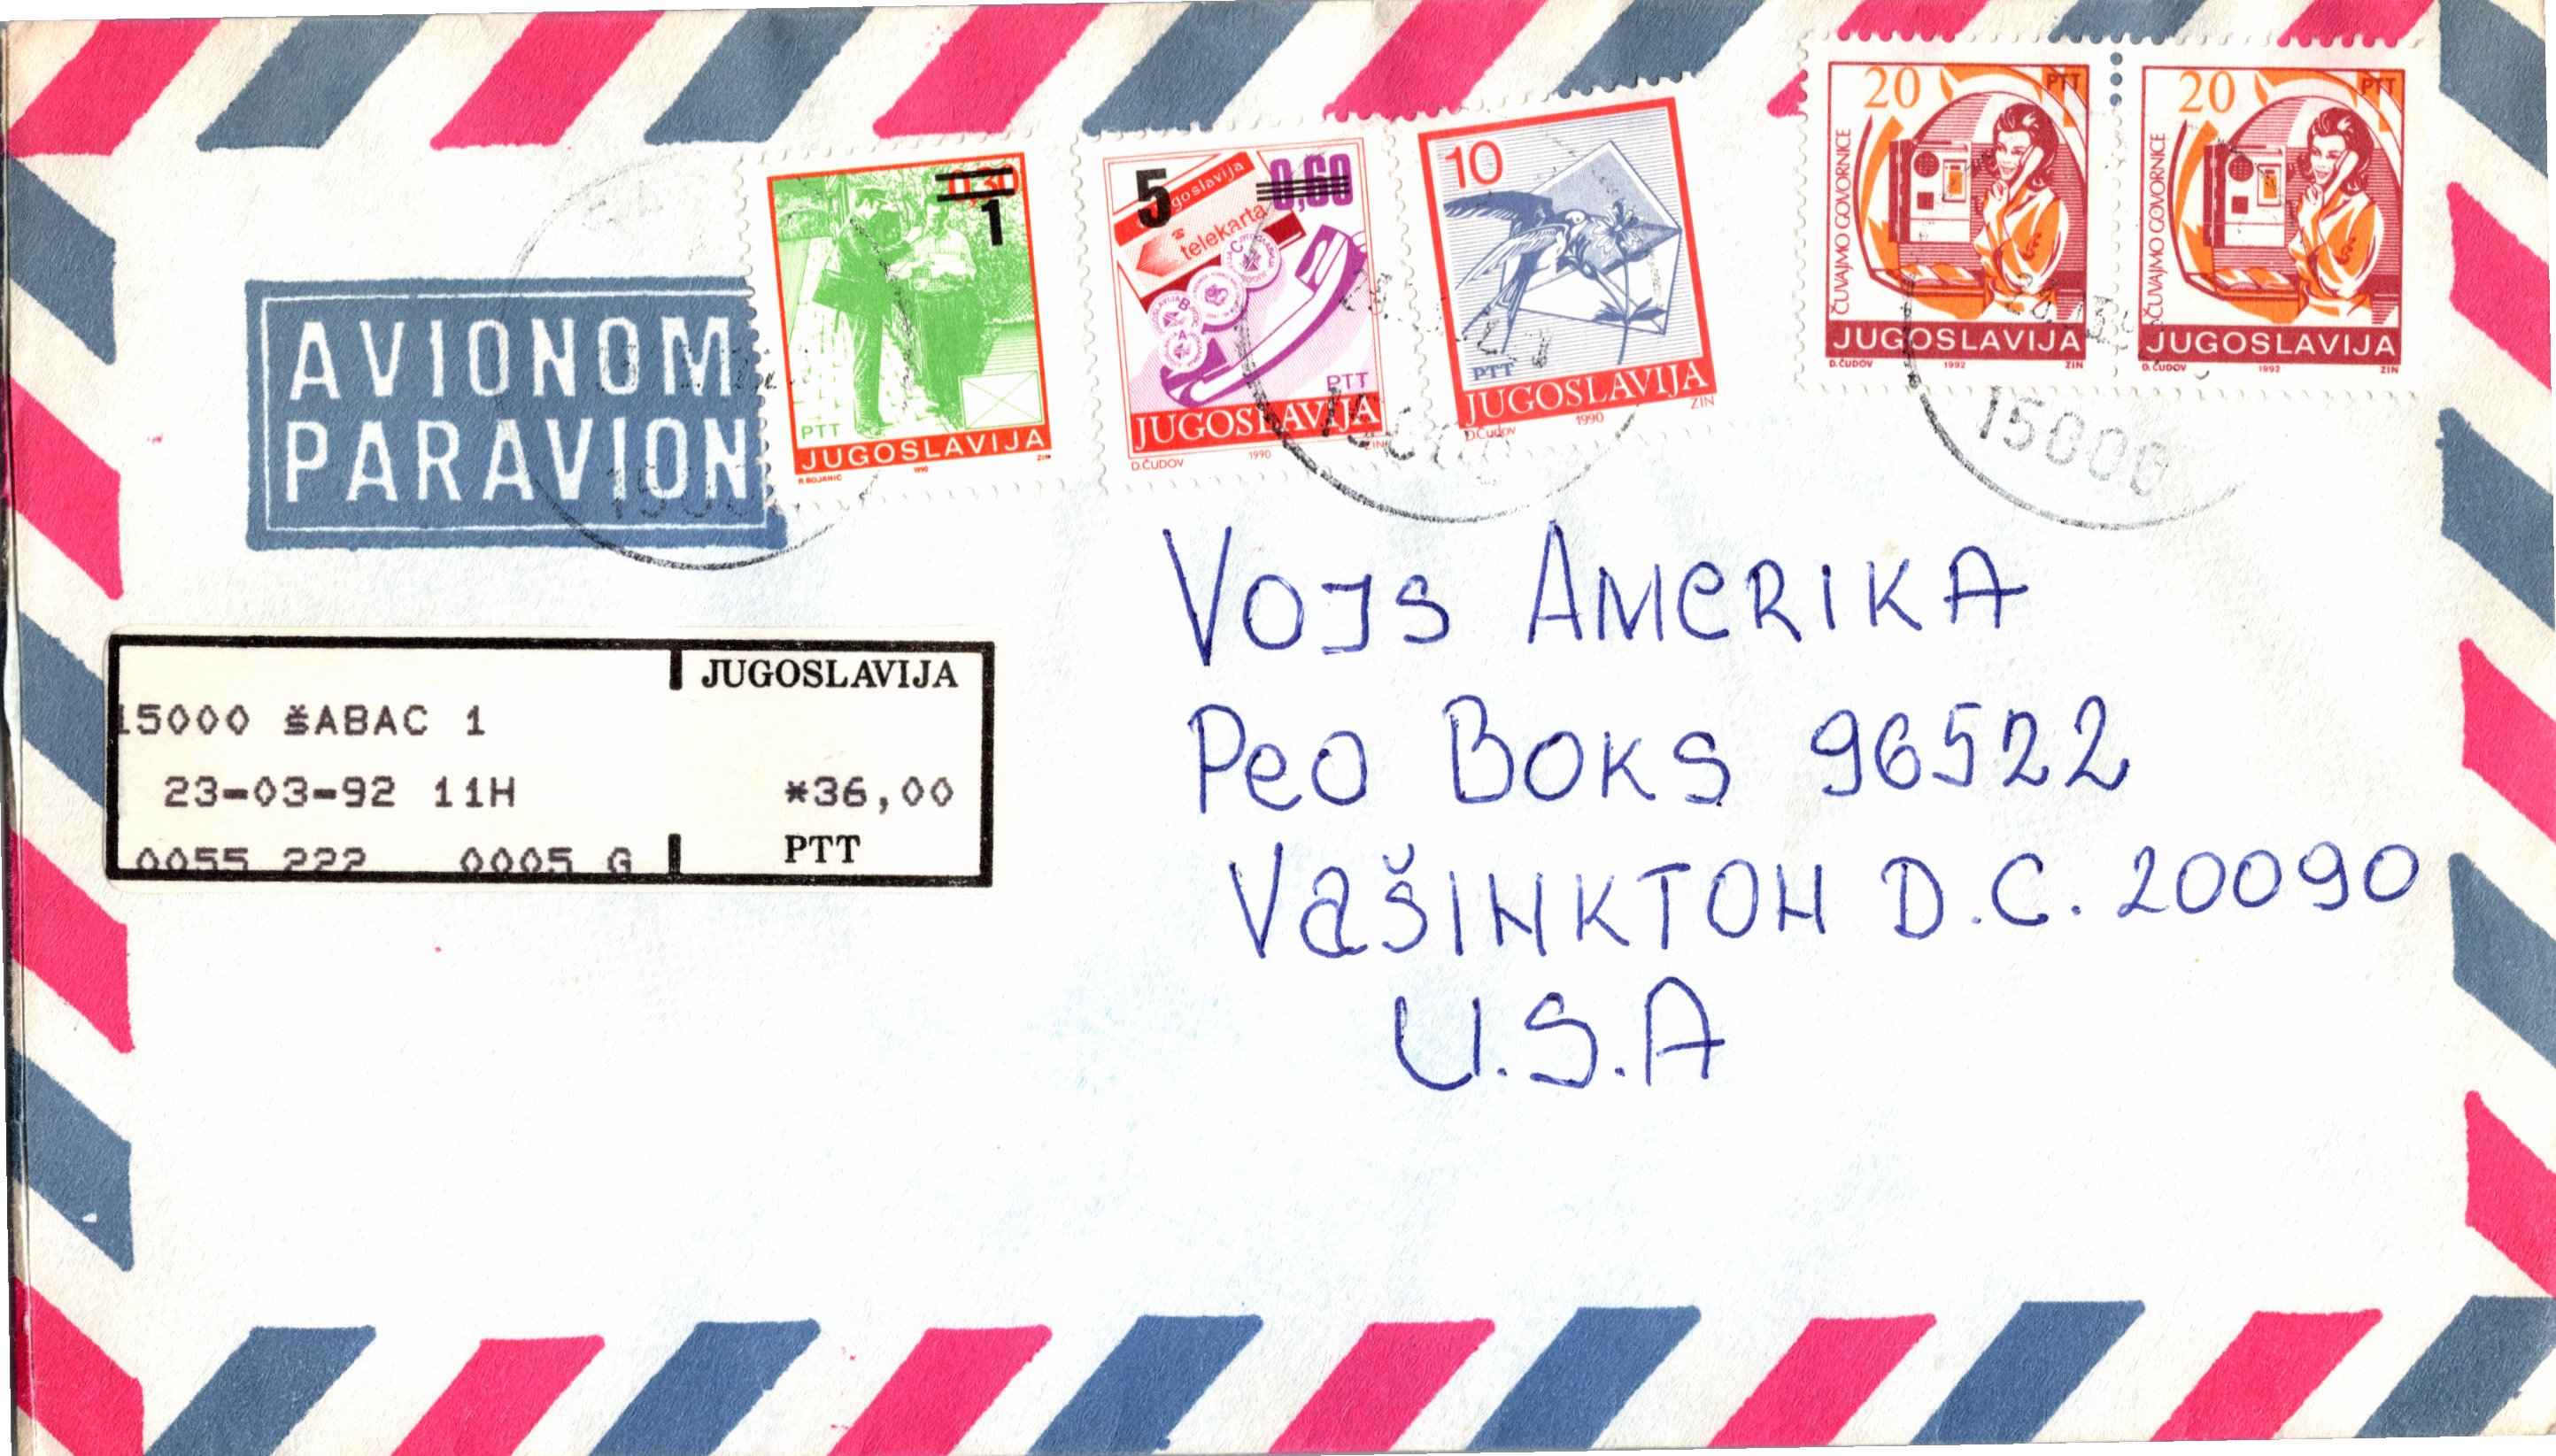 20 PTT
ČUVAJMO GOVORNICE
JUGOSLAVIJA
D.ČUDOV 1992 ZIN
20 PTT
ČUVAJMO GOVORNICE
JUGOSLAVIJA
D.ČUDOV 1992 ZIN
10
PTT
JUGOSLAVIJA
D.Čudov 1990 ZIN
5 0,60
Jugoslavija
telekarta
PTT
JUGOSLAVIJA
D.ČUDOV 1990 ZIN
0,30
1
PTT
JUGOSLAVIJA
R.BOJANIĆ 1990 ZIN
15000
AVIONOM
PARAVION
JUGOSLAVIJA
15000 šABAC 1
23-03-92 11H *36,00
0055 222 0005 G PTT
VOJS AMeRIKA
PeO BOKS 96522
VaŠINKTOH D.C. 20090
U.S.A